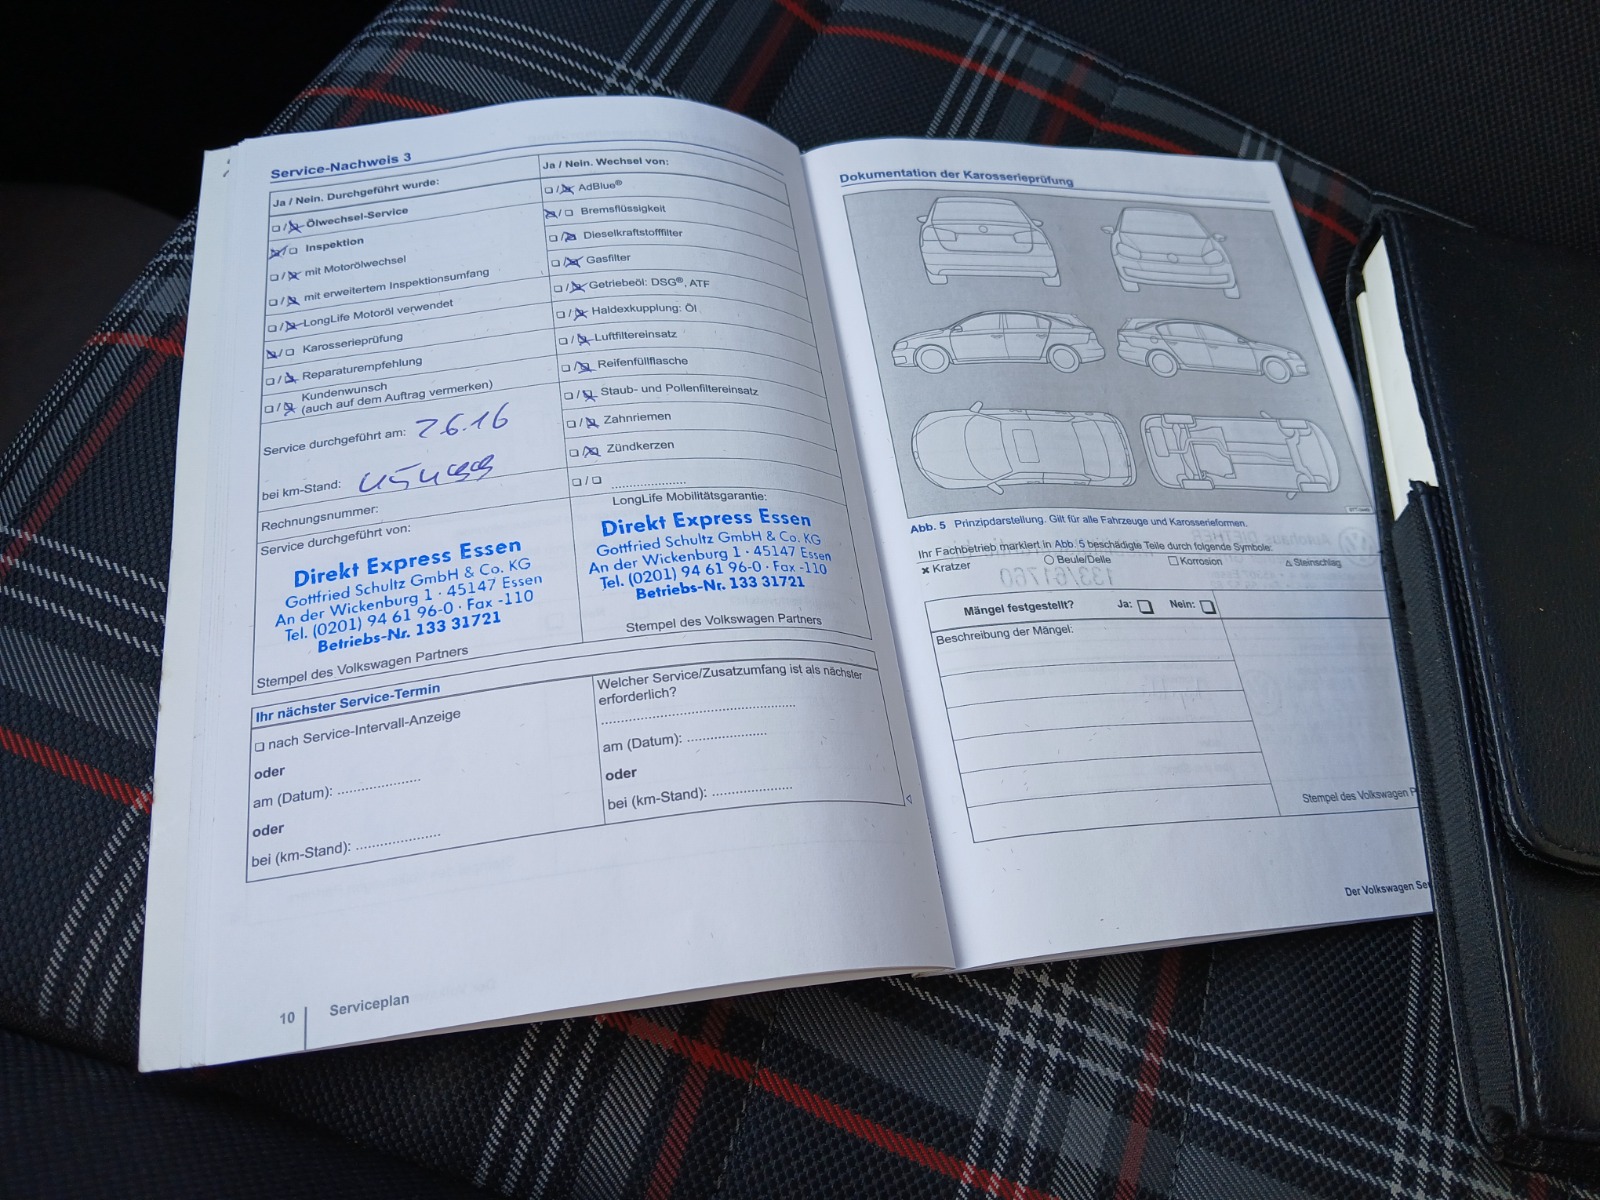 Service-Nachweis 3
Ja / Nein. Durchgeführt wurde:
Ölwechsel-Service
Inspektion
mit Motorölwechsel
mit erweitertem Inspektionsumfang
LongLife Motoröl verwendet
Karosserieprüfung
Reparaturempfehlung
Kundenwunsch
(auch auf dem Auftrag vermerken)
Service durchgeführt am:
bei km-Stand:
Rechnungsnummer:
Service durchgeführt von:
Direkt Express Essen
Gottfried Schultz GmbH & Co. KG
An der Wickenburg 1 · 45147 Essen
Tel. (0201) 94 61 96-0 · Fax -110
Betriebs-Nr. 133 31721
Stempel des Volkswagen Partners
Ja / Nein. Wechsel von:
AdBlue®
Bremsflüssigkeit
Dieselkraftstofffilter
Gasfilter
Getriebeöl: DSG®, ATF
Haldexkupplung: Öl
Luftfiltereinsatz
Reifenfüllflasche
Staub- und Pollenfiltereinsatz
Zahnriemen
Zündkerzen
LongLife Mobilitätsgarantie:
Direkt Express Essen
Gottfried Schultz GmbH & Co. KG
An der Wickenburg 1 · 45147 Essen
Tel. (0201) 94 61 96-0 · Fax -110
Betriebs-Nr. 133 31721
Stempel des Volkswagen Partners
Ihr nächster Service-Termin
nach Service-Intervall-Anzeige
oder
am (Datum):
oder
bei (km-Stand):
Welcher Service/Zusatzumfang ist als nächster
erforderlich?
am (Datum):
oder
bei (km-Stand):
10 Serviceplan
Dokumentation der Karosserieprüfung
Abb. 5 Prinzipdarstellung. Gilt für alle Fahrzeuge und Karosserieformen.
Ihr Fachbetrieb markiert in Abb. 5 beschädigte Teile durch folgende Symbole:
Kratzer Beule/Delle Korrosion Steinschlag
Mängel festgestellt? Ja: Nein:
Beschreibung der Mängel:
Stempel des Volkswagen P
Der Volkswagen Se